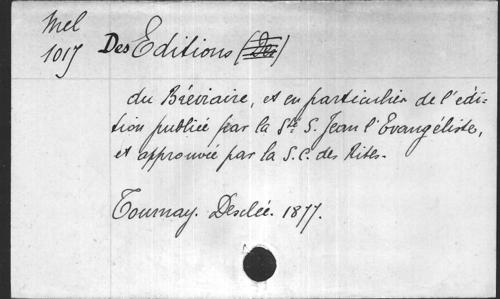 Mel
1017
Des Editions (Des)
du Bréviaire, et en particulier de l'édi-
tion publiée par la Sté S. Jean l'Evangéliste,
et approuvée par la S. C. des Rites.
Tournay. Desclée. 1877.